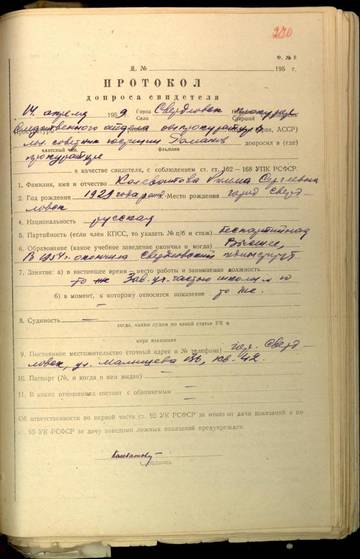 280
Ф. № 8
Д. № 195 г.
ПРОТОКОЛ
допроса свидетеля
14 апреля 1959 Город Свердловск прокурор
Следственного отдела облпрокуратуры
мл. советник юстиции Романов допросил в(на)
классный чин, фамилия
прокуратуре
в качестве свидетеля, с соблюдением ст. ст. 162—168 УПК РСФСР
1. Фамилия, имя и отчество Сергеевна
2. Год рождения 1929 года Место рождения город Сверд
ловск
3. Национальность русская
5. Партийность (если член КПСС, то указать № п/б и стаж) беспартийная
6. Образование (какое учебное заведение окончил и когда) Высшее,
В 1954 г. окончила Свердловский пединститут
7. Занятие: а) в настоящее время — место работы и занимаемая должность
то же Зав. уч. частью школы
б) в момент, к которому относится показание то же.
8. Судимость —
когда, каким судом по какой статье УК и
мера наказания
9. Постоянное местожительство (точный адрес и № телефона) гор. Сверд
ловск, ул. Малышева кв. 42.
10. Паспорт (№, и когда и кем выдан) —
11. В каких отношениях состоит с обвиняемым —
Об ответственности по первой части ст. 92 УК РСФСР за отказ от дачи показаний и по
ст. 95 УК РСФСР за дачу заведомо ложных показаний предупрежден.
подпись